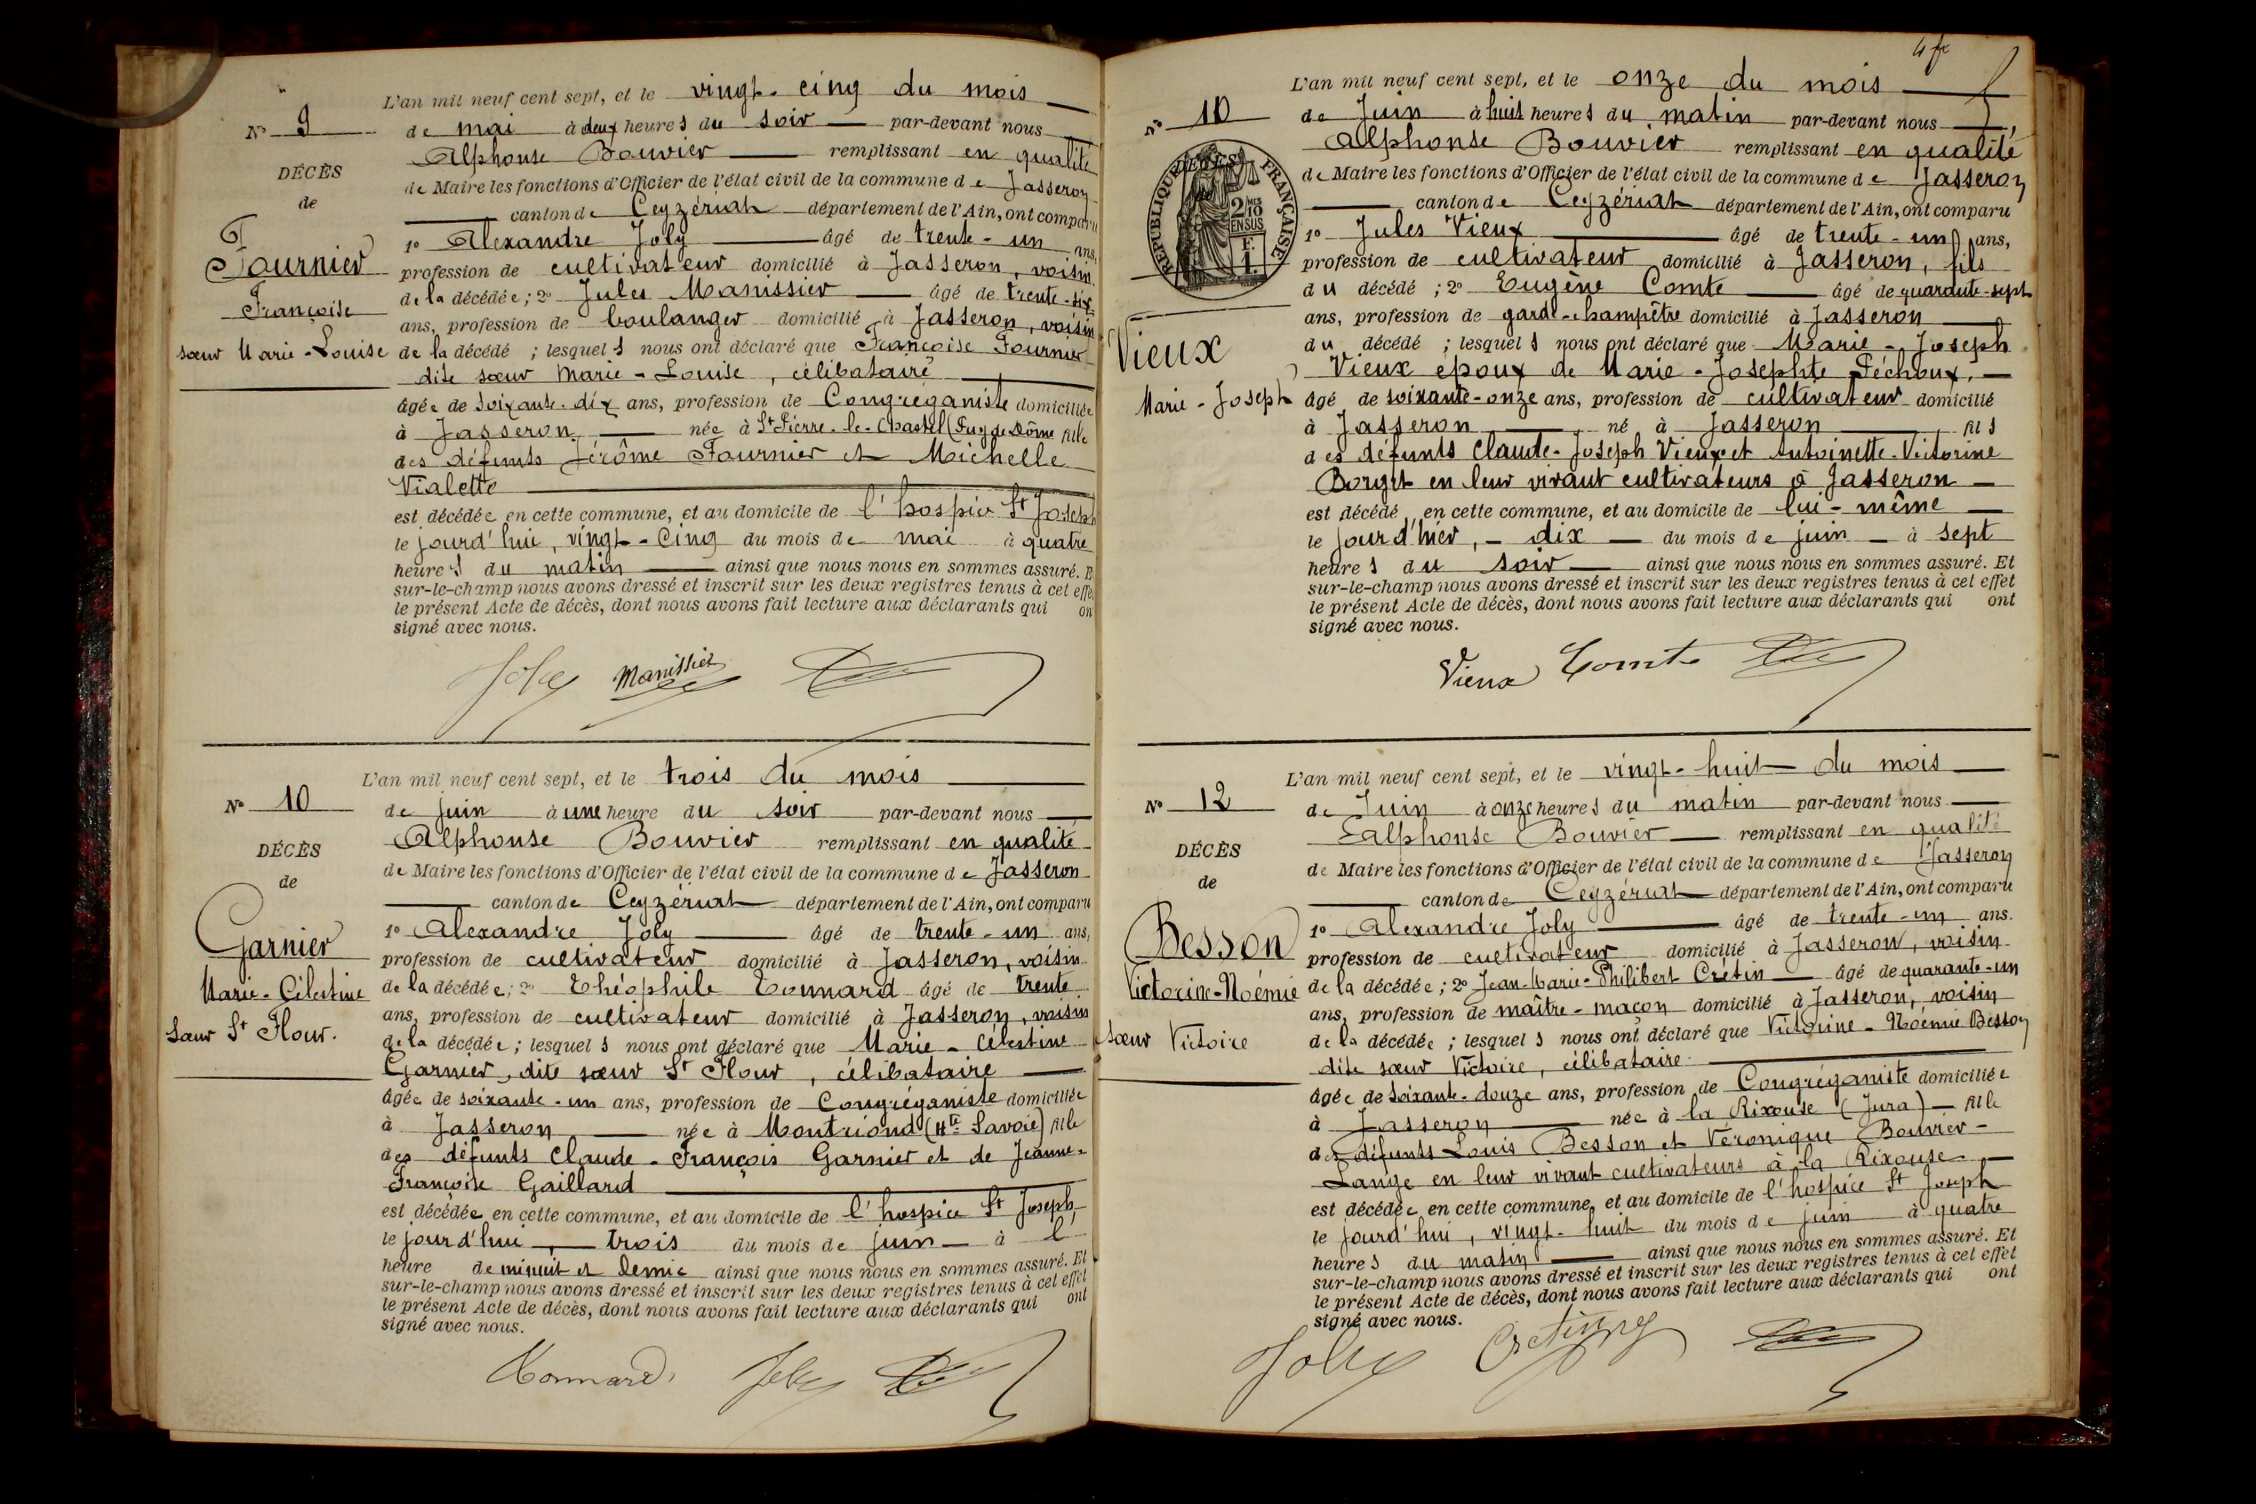 L'an mil neuf cent sept, et le vingt-cinq du mois
N° 9
de mai à deux heures du soir par-devant nous
Alphonse Bouvier remplissant en qualité
DÉCÈS
de Maire les fonctions d'Officier de l'état civil de la commune de Jasseron
de
canton de Ceyzériat département de l'Ain, ont comparu
1° Alexandre Joly âgé de trente-un ans,
Fournier
profession de cultivateur domicilié à Jasseron, voisin
de la décédée; 2° Jules Manissier âgé de trente-six
Françoise
ans, profession de boulanger domicilié à Jasseron, voisin
sœur Marie-Louise
de la décédé ; lesquels nous ont déclaré que Françoise Fournier
dite sœur Marie-Louise, célibataire
âgée de soixante-dix ans, profession de Congréganiste domiciliée
à Jasseron née à St Pierre-le-Chastel (Puy de Dôme fille
des défunts Jérôme Fournier et Michelle
Vialette
est décédée en cette commune, et au domicile de l'hospice St Joseph
le jourd'hui, vingt-cinq du mois de mai à quatre
heures du matin ainsi que nous nous en sommes assuré. E
sur-le-champ nous avons dressé et inscrit sur les deux registres tenus à cet effe
le présent Acte de décès, dont nous avons fait lecture aux déclarants qui on
signé avec nous.
Joly Manissier
L'an mil neuf cent sept, et le trois du mois
N° 10
de juin à une heure du soir par-devant nous
Alphonse Bouvier remplissant en qualité
DÉCÈS
de Maire les fonctions d'Officier de l'état civil de la commune de Jasseron
de
canton de Ceyzériat département de l'Ain, ont comparu
1° Alexandre Joly âgé de trente-un ans,
Garnier
profession de cultivateur domicilié à Jasseron, voisin
Marie-Célestine
de la décédée; 2° Théophile Tonnard âgé de trente
ans, profession de cultivateur domicilié à Jasseron, voisin
Sœur St Flour.
de la décédée; lesquels nous ont déclaré que Marie-Célestine
Garnier, dite sœur St Flour, célibataire
âgée de soixante-un ans, profession de Congréganiste domiciliée
à Jasseron née à Montriond (Hte Savoie) fille
des défunts Claude-François Garnier et de Jeanne-
Françoise Gaillard
est décédée en cette commune, et au domicile de l'hospice St Joseph,
le jourd'hui, trois du mois de juin à l'
heure de minuit et demie ainsi que nous nous en sommes assuré. Et
sur-le-champ nous avons dressé et inscrit sur les deux registres tenus à cet effet
le présent Acte de décès, dont nous avons fait lecture aux déclarants qui ont
signé avec nous.
Tonnard Joly
L'an mil neuf cent sept, et le onze du mois
N° 10
de Juin à huit heures du matin par-devant nous
Alphonse Bouvier remplissant en qualité
de Maire les fonctions d'Officier de l'état civil de la commune de Jasseron
RÉPUBLIQUE FRANÇAISE
2/10 EN SUS
F. 1.
canton de Ceyzériat département de l'Ain, ont comparu
1° Jules Vieux âgé de trente-un ans,
profession de cultivateur domicilié à Jasseron, fils
du décédé ; 2° Eugène Comte âgé de quarante-sept
ans, profession de garde-champêtre domicilié à Jasseron
Vieux
du décédé ; lesquels nous ont déclaré que Marie-Joseph
Vieux époux de Marie-Josephte Péchoux,
Marie-Joseph
âgé de soixante-onze ans, profession de cultivateur domicilié
à Jasseron né à Jasseron fils
des défunts Claude-Joseph Vieux et Antoinette-Victorine
Borget en leur vivant cultivateurs à Jasseron
est décédé en cette commune, et au domicile de lui-même
le jourd'hier, dix du mois de juin à sept
heures du soir ainsi que nous nous en sommes assuré. Et
sur-le-champ nous avons dressé et inscrit sur les deux registres tenus à cet effet
le présent Acte de décès, dont nous avons fait lecture aux déclarants qui ont
signé avec nous.
Vieux Comte
L'an mil neuf cent sept, et le vingt-huit du mois
N° 12
de Juin à onze heures du matin par-devant nous
Alphonse Bouvier remplissant en qualité
DÉCÈS
de Maire les fonctions d'Officier de l'état civil de la commune de Jasseron
de
canton de Ceyzériat département de l'Ain, ont comparu
1° Alexandre Joly âgé de trente-un ans.
Besson
profession de cultivateur domicilié à Jasseron, voisin
Victorine-Noémie
de la décédée; 2° Jean-Marie-Philibert Crétin âgé de quarante-un
ans, profession de maître-maçon domicilié à Jasseron, voisin
sœur Victoire
de la décédée ; lesquels nous ont déclaré que Victorine-Noémie Besson
dite sœur Victoire, célibataire
âgée de soixante-douze ans, profession de Congréganiste domiciliée
à Jasseron née à la Rixouse (Jura) fille
des défunts Louis Besson et Véronique Bouvier-
Lange en leur vivant cultivateurs à la Rixouse
est décédée en cette commune, et au domicile de l'hospice St Joseph
le jourd'hui, vingt-huit du mois de juin à quatre
heures du matin ainsi que nous nous en sommes assuré. Et
sur-le-champ nous avons dressé et inscrit sur les deux registres tenus à cet effet
le présent Acte de décès, dont nous avons fait lecture aux déclarants qui ont
signé avec nous.
Joly